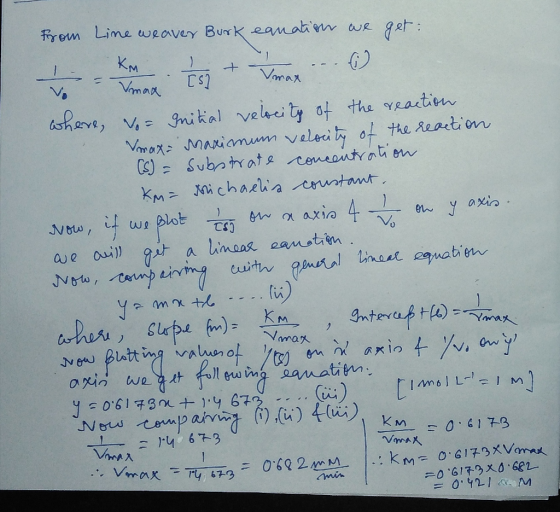 From Lineweaver Burk equation we get:
1/V₀ = KM/Vmax · 1/[S] + 1/Vmax ... (i)
where, V₀ = Initial velocity of the reaction
Vmax = Maximum velocity of the reaction
[S] = Substrate concentration
KM = Michaelis constant.
Now, if we plot 1/[S] on x axis & 1/V₀ on y axis.
we will get a linear equation.
Now, compairing with general linear equation
y = mx + c .... (ii)
where, slope (m) = KM/Vmax , Intercept (c) = 1/Vmax
Now plotting values of 1/[S] on 'x' axis & 1/V₀ on 'y'
axis we get following equation:
[1 mol L⁻¹ = 1 M]
y = 0.6173x + 1.4673 .... (iii)
Now compairing (i), (ii) & (iii)
1/Vmax = 1.4673
∴ Vmax = 1/1.4673 = 0.682 mM/min
KM/Vmax = 0.6173
∴ KM = 0.6173 × Vmax
= 0.6173 × 0.682
= 0.421 M